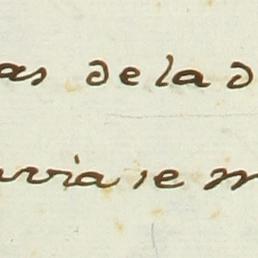 as de la d
uvia se m